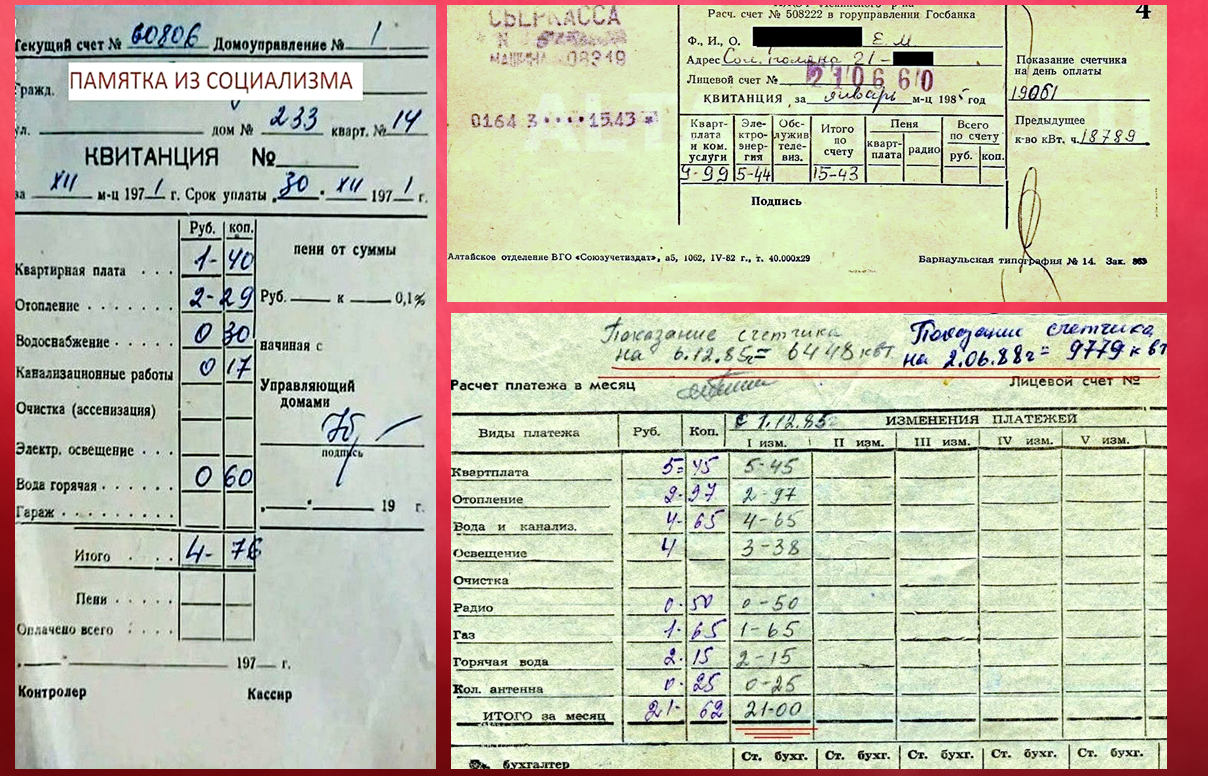 Текущий счет № 60806 Домоуправление № 1
ПАМЯТКА ИЗ СОЦИАЛИЗМА
Гражд.
ул. дом № 233 кварт. № 14
КВИТАНЦИЯ №
за XII м-ц 1971 г. Срок уплаты „30" XII 1971 г.
Руб. коп.
Квартирная плата . . . 1- 40
Отопление . . . . . 2- 29
Водоснабжение . . . . 0 30
Канализационные работы 0 17
Очистка (ассенизация)
Электр. освещение . . .
Вода горячая . . . . . . 0 60
Гараж . . . . . . . . .
Итого . . . . 4- 76
Пени . . . . . .
Оплачено всего . . . .
пени от суммы
Руб. к 0,1%
начиная с
Управляющий
домами
подпись
„ " 19 г.
„ " 197 г.
Контролер Кассир
СБЕРКАССА
N
МАШИНА 08319
0164 3 •••• 15.43
4
Расч. счет № 508222 в горуправлении Госбанка
Ф., И., О. Е. М.
Адрес 21 -
Лицевой счет № 210660
КВИТАНЦИЯ за январь м-ц 1985 год
Кварт-плата и ком. услуги Эле-ктро-энер-гия Обс-лужив теле-виз. Итого по счету Пеня Всего по счету
кварт-плата радио руб. коп.
9-99 5-44 15-43
Подпись
Показание счетчика
на день оплаты
19061
Предыдущее
к-во кВт, ч. 18789
Алтайское отделение ВГО «Союзучетиздат», а5, 1062, IV-82 г., т. 40.000х29 Барнаульская типография № 14. Зак.
Показание счетчика
на 6.12.85г= 6448 квт.
Показание счетчика
на 2.06.88г= 9779 квт
Расчет платежа в месяц Лицевой счет №
Виды платежа Руб. Коп. с 1.12.85г ИЗМЕНЕНИЯ ПЛАТЕЖЕЙ
I изм. II изм. III изм. IV изм. V изм.
Квартплата 5= 45 5-45
Отопление 2- 97 2-97
Вода и канализ. 4- 65 4-65
Освещение 4 3-38
Очистка
Радио 0- 50 0-50
Газ 1- 65 1-65
Горячая вода 2- 15 2-15
Кол. антенна 0- 25 0-25
ИТОГО за месяц 21- 62 21-00
Ст. бухг. Ст. бухг. Ст. бухг. Ст. бухг. Ст. бухг.
бухгалтер